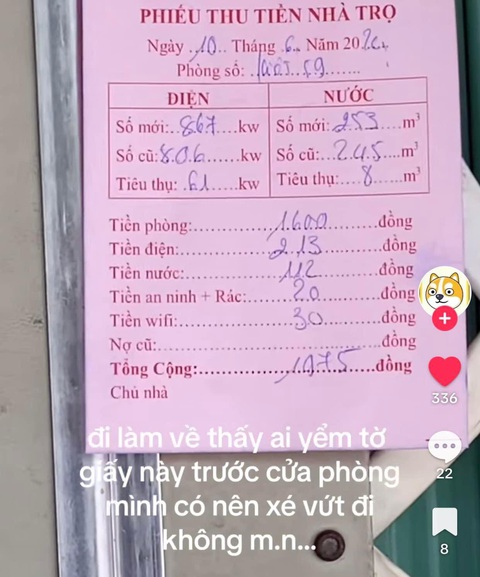 PHIẾU THU TIỀN NHÀ TRỌ
Ngày 10 Tháng 6 Năm 202
Phòng số:
ĐIỆN NƯỚC
Số mới: 867 kw Số mới: 253 m³
Số cũ: 806 kw Số cũ: 245 m³
Tiêu thụ: 61 kw Tiêu thụ: 8 m³
Tiền phòng: 1600 đồng
Tiền điện: 213 đồng
Tiền nước: 112 đồng
Tiền an ninh + Rác: 20 đồng
Tiền wifi: 30 đồng
Nợ cũ: đồng
Tổng Cộng: 1975 đồng
Chủ nhà
đi làm về thấy ai yểm tờ
giấy này trước cửa phòng
mình có nên xé vứt đi
không m.n...
336
22
8